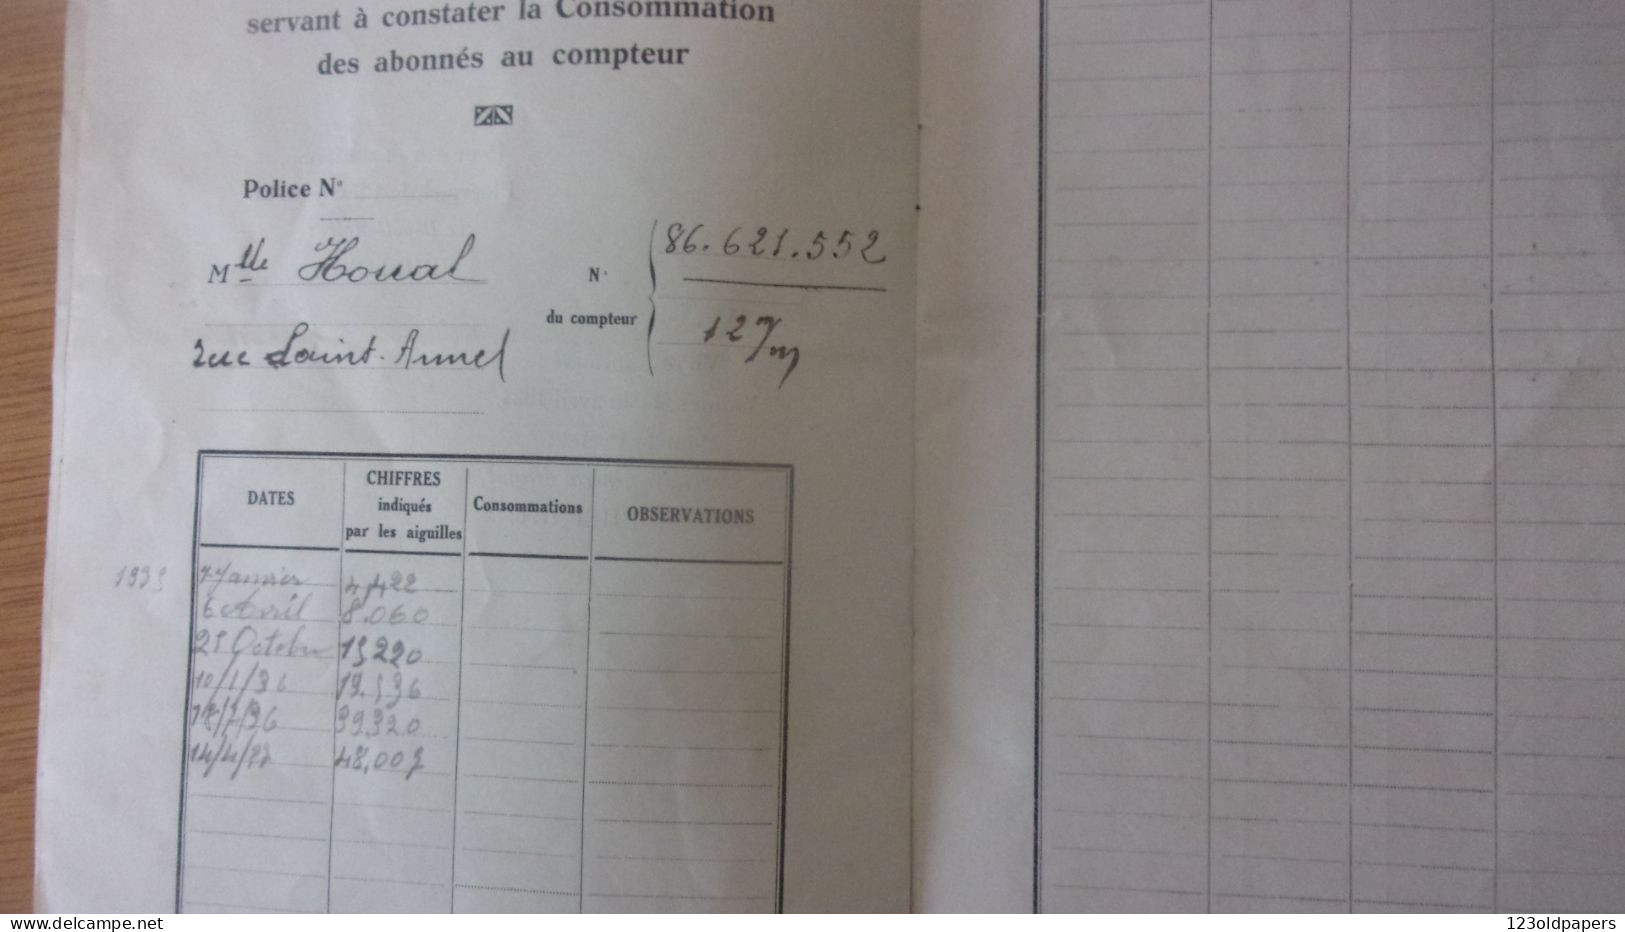 servant à constater la Consommation
des abonnés au compteur
Police N°
Mlle Houal
rue Saint-Armel
N°
du compteur
86.621.552
12 7/m
DATES
CHIFFRES
indiqués
par les aiguilles
Consommations
OBSERVATIONS
1935 7 Janvier 4,422
6 Avril 8.060
25 Octobre 15220
10/1/36 19.536
18/7/36 39.320
14/4/37 48.007
delcampe.net
123oldpapers